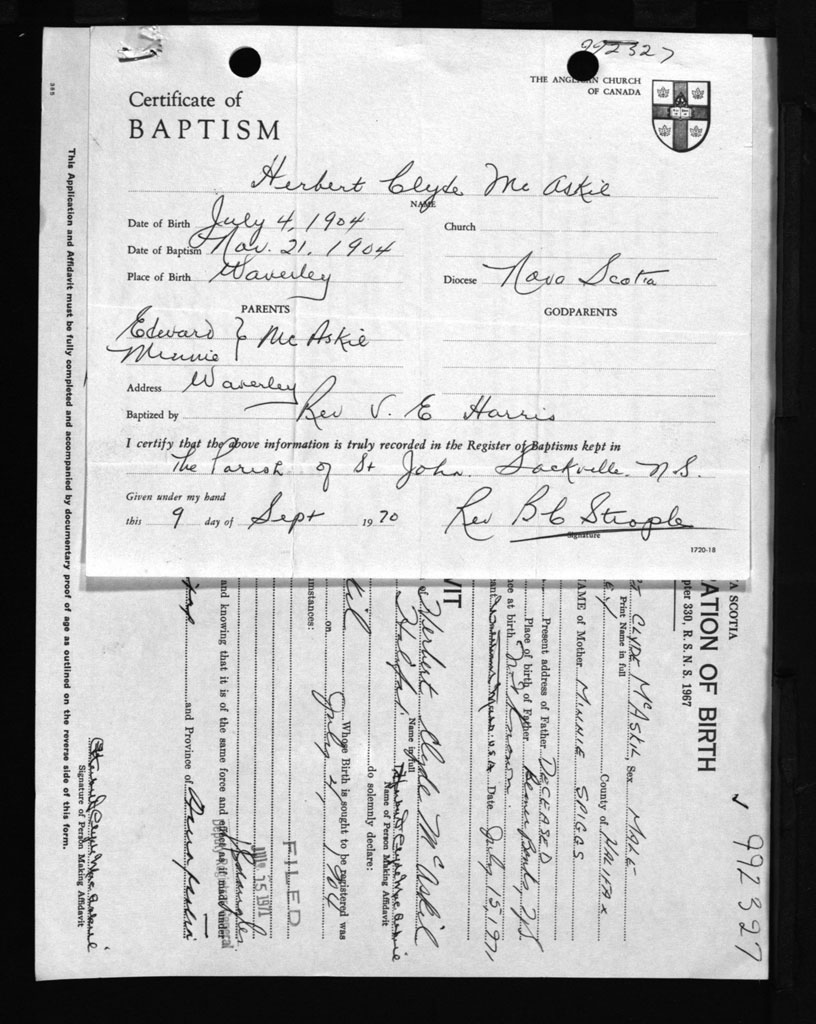 992327
THE ANGLICAN CHURCH
OF CANADA
Certificate of
BAPTISM
Herbert Clyde Mc Askie
NAME
Date of Birth July 4, 1904
Church
Date of Baptism Nov. 21, 1904
Place of Birth Waverley
Diocese Nova Scotia
PARENTS
GODPARENTS
Edward } Mc Askie
Minnie
Address Waverley
Baptized by Rev V. E Harris
I certify that the above information is truly recorded in the Register of Baptisms kept in
The Parish of St John. Sackville. N.S.
Given under my hand
this 9 day of Sept 1970
Rev B C Strople
Signature
1720-18
992 327
A SCOTIA
ATION OF BIRTH
pter 330, R. S. N. S. 1967
CLYDE McASKIL, Sex MALE
Print Name in full
County of HALIFAX
NAME of Mother MINNIE SPIGGS
Present address of Father DECEASED
Place of birth of Father Beaver Bank, NS
ce at birth
Date July 15, 1971
VIT
Herbert Clyde McAskil
Name in full
Name of Person Making Affidavit
do solemnly declare:
Whose Birth is sought to be registered was
on July 4, 1904
nstances:
FILED
15 1971
and knowing that it is of the same force and effect as if made under
and Province of
Signature of Person Making Affidavit
This Application and Affidavit must be fully completed and accompanied by documentary proof of age as outlined on the reverse side of this form.